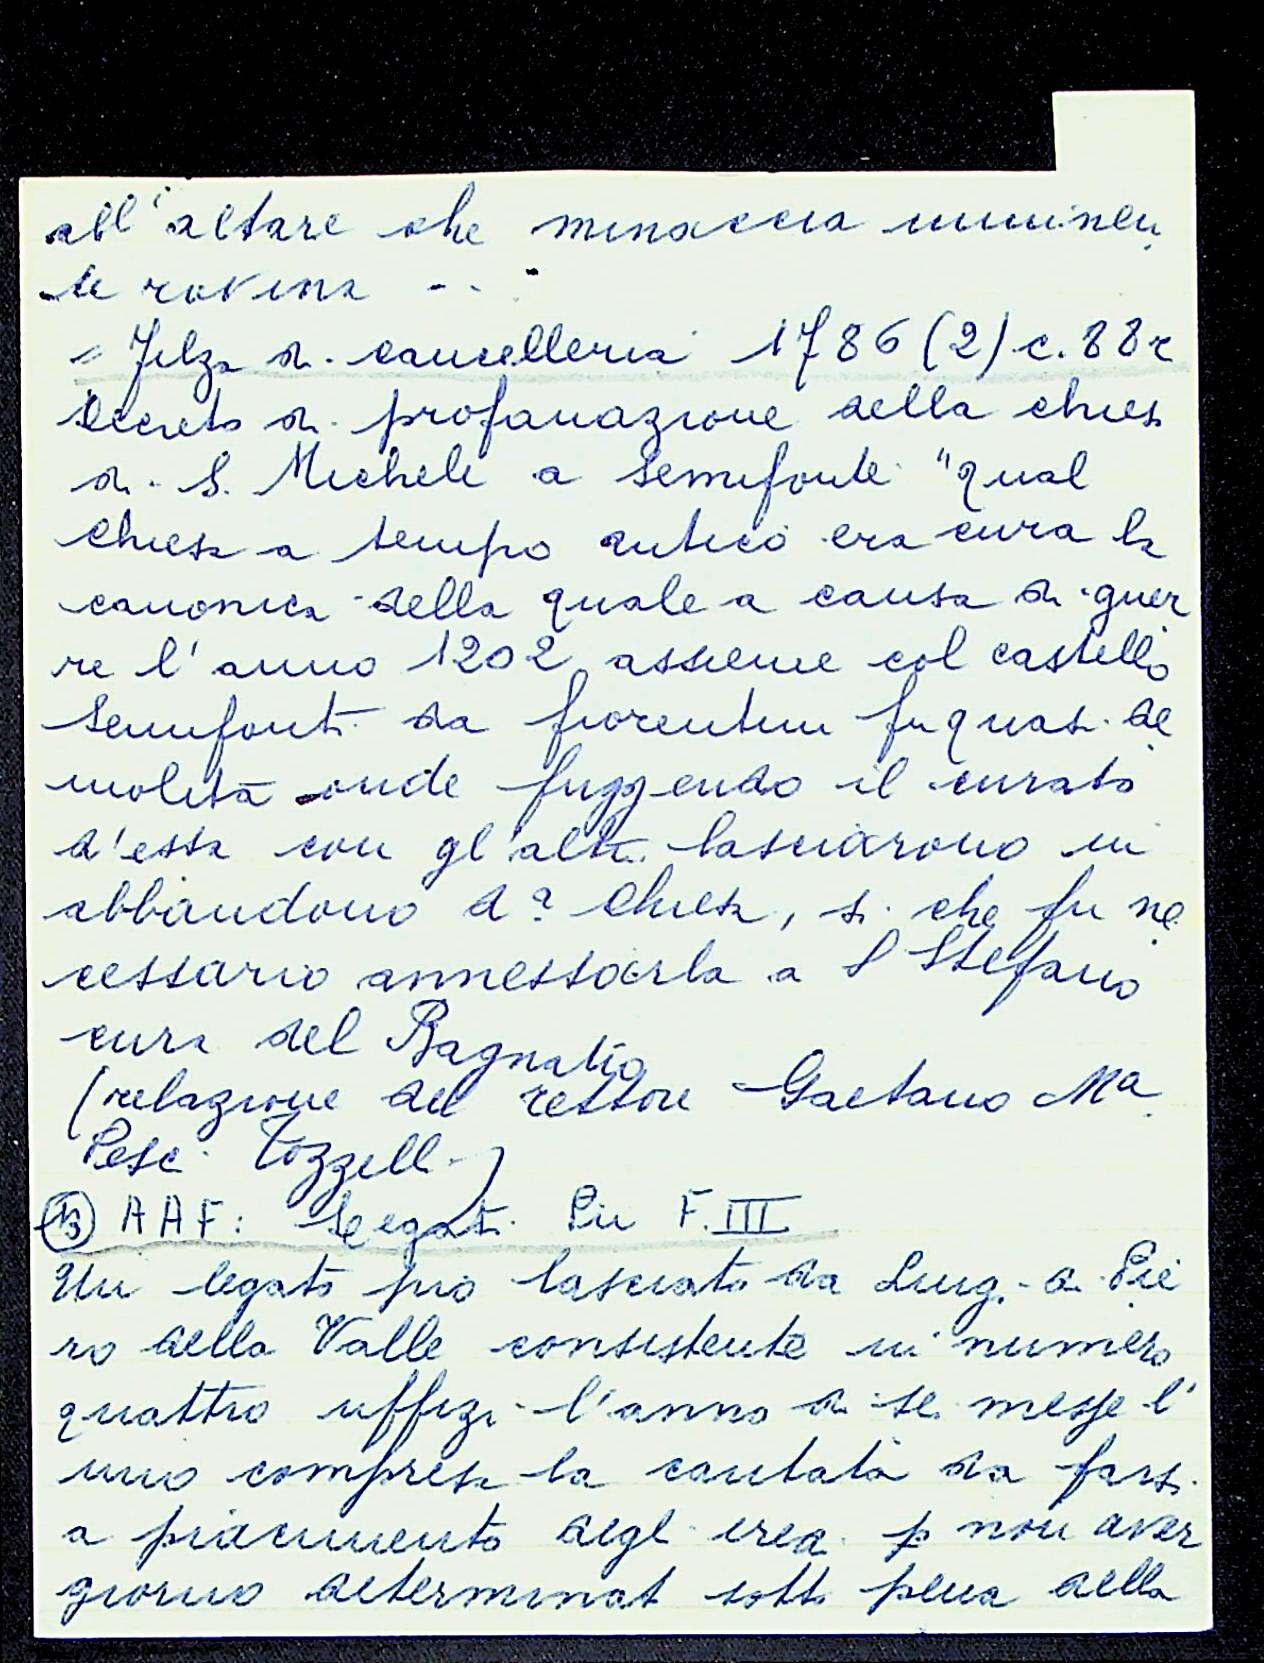 all'altare che minaccia imminen
te rovina - - . "
= Filza di cancelleria 1786 (2) c. 88r
Decreto di profanazione della chiesa
di S. Michele a Semifonte "qual
chiesa a tempo antico era cura la
canonica della quale a causa di guer
re l'anno 1202 assieme col castello
Semifonti da fiorentini fu quasi de
molita onde fuggendo il curato
d'essa con gl'altri lasciarono in
abbandono da chiesa, si che fu ne
cessario annessarla a S Stefano
cura del Bagnolio
(relazione del rettore Gaetano Ma
Pesc. Tozzelli)
13 AAF: Legati Pii F. III
Un legato pio lasciato da Luigi di Pie
ro della Valle consistente in numero
quattro uffizi l'anno di sei messe l'
uno compresa la cantata da farsi
a piacimento degl eredi p non aver
giorno determinato sotto pena della